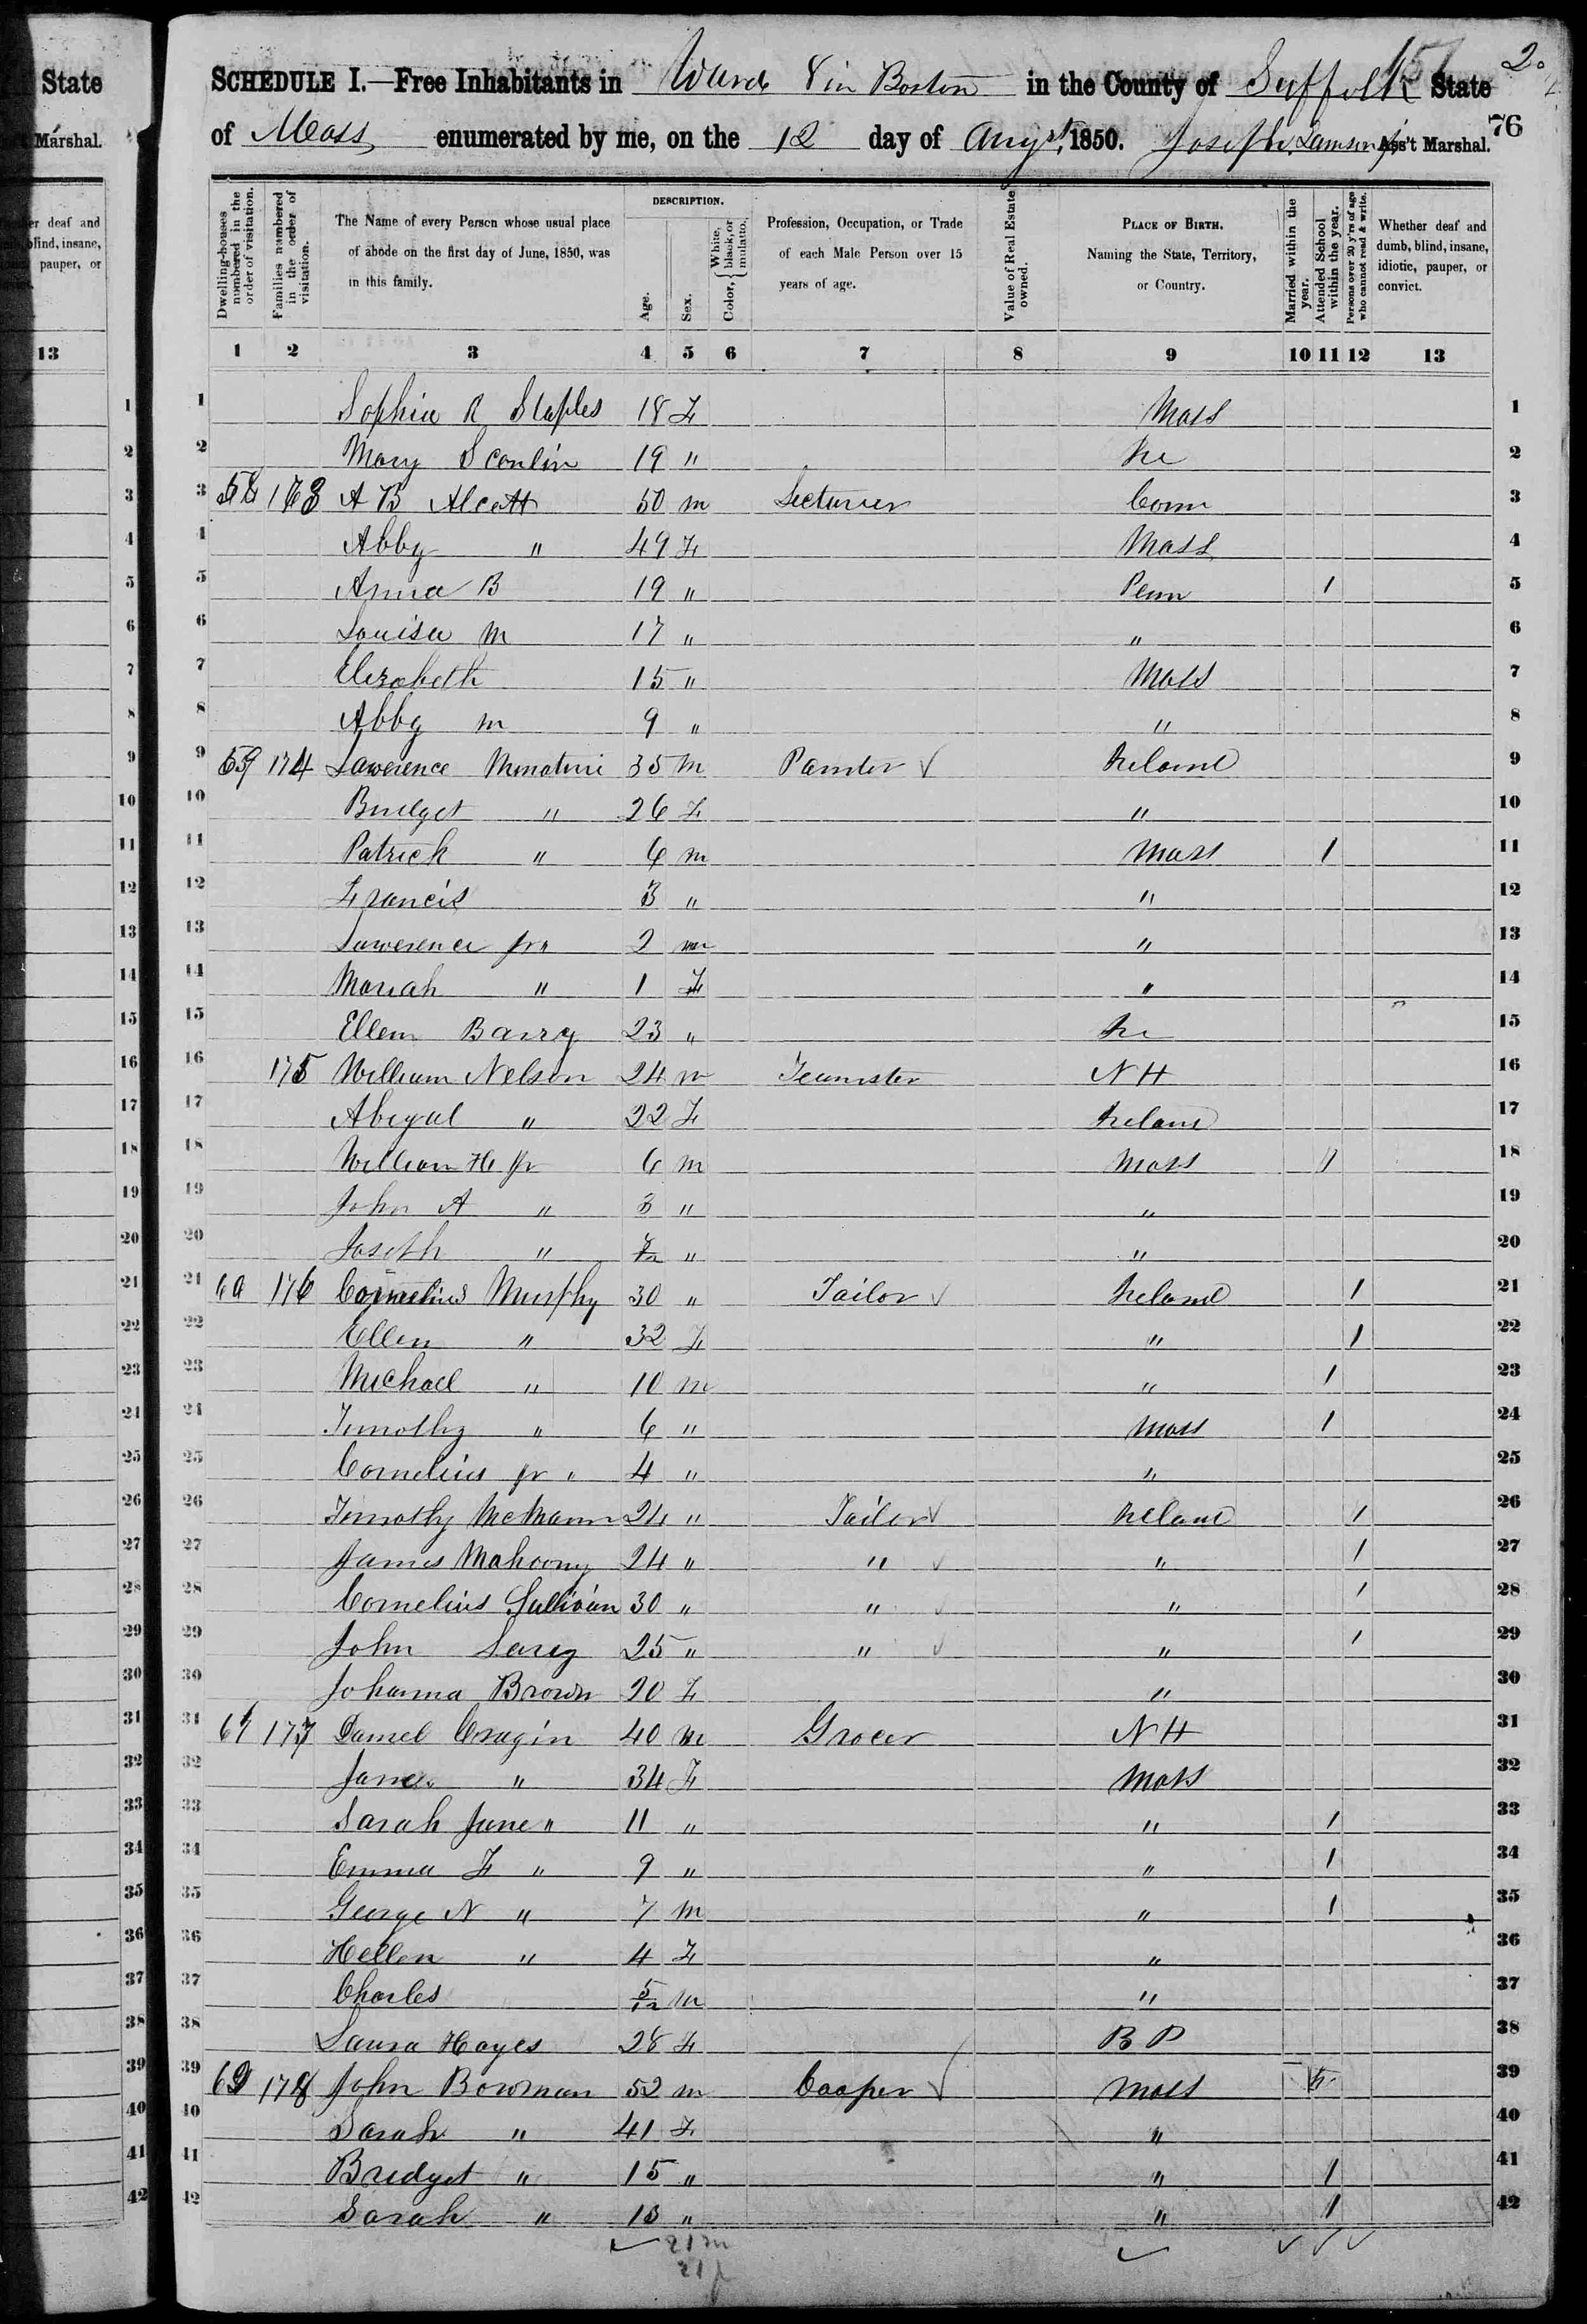 State
Marshal.
er deaf and
blind, insane,
pauper, or
13
157 2
SCHEDULE I.—Free Inhabitants in Ward 8 in Boston in the County of Suffolk State
of Mass enumerated by me, on the 12 day of Augst, 1850. Joseph Lamson Jr Ass't Marshal. 76
Dwelling-houses numbered in the order of visitation.
Families numbered in the order of visitation.
The Name of every Person whose usual place of abode on the first day of June, 1850, was in this family.
DESCRIPTION.
Age.
Sex.
Color, { White, black, or mulatto.
Profession, Occupation, or Trade of each Male Person over 15 years of age.
Value of Real Estate owned.
PLACE OF BIRTH. Naming the State, Territory, or Country.
Married within the year.
Attended School within the year.
Persons over 20 y'rs of age who cannot read & write.
Whether deaf and dumb, blind, insane, idiotic, pauper, or convict.
1 2 3 4 5 6 7 8 9 10 11 12 13
1 Sophia R Staples 18 F Mass 1
2 Mary Scanlin 19 " Ire 2
3 58 173 A B Alcott 50 m Lecturer Conn 3
4 Abby " 49 F Mass 4
5 Anna B 19 " Penn 1 5
6 Louisa M 17 " " 6
7 Elizabeth 15 " Mass 7
8 Abby m 9 " " 8
9 59 174 Lawerence 35 m Painter ✓ Ireland 9
10 Bridget " 26 F " 10
11 Patrick " 6 m Mass 1 11
12 Francis 3 " " 12
13 Lawerence Jr " 2 m " 13
14 Mariah " 1 F " 14
15 Ellen Barry 23 " Ire 15
16 175 William Nelson 24 m Teamster N H 16
17 Abigal " 22 F Ireland 17
18 William H Jr 6 m Mass 1 18
19 John A " 3 " " 19
20 Joseph " " " 20
21 60 176 Cornelius Murphy 30 " Tailor ✓ Ireland 1 21
22 Ellen " 32 F " 1 22
23 Michael " 10 m " 1 23
24 Timothy " 6 " Mass 1 24
25 Cornelius Jr " 4 " " 25
26 Timothy McMann 24 " Tailor ✓ Ireland 1 26
27 James Mahoony 24 " " ✓ " 1 27
28 Cornelius Sullivan 30 " " ✓ " 1 28
29 John 25 " " ✓ " 1 29
30 Johanna Brown 20 F " 30
31 61 177 Daniel Cragin 40 m Grocer N H 31
32 Jane " 34 F Mass 32
33 Sarah Jane " 11 " " 1 33
34 Emma F " 9 " " 1 34
35 George N " 7 m " 1 35
36 Hellen " 4 F " 36
37 Charles 5/12 m " 37
38 Laura Hayes 28 F B P 38
39 62 178 John Bowman 52 m Cooper ✓ Mass 39
40 Sarah " 41 F " 40
41 Bridget " 15 " " 1 41
42 Sarah " 13 " " 1 42
✓ 21 m ✓ ✓ ✓ ✓
21 f